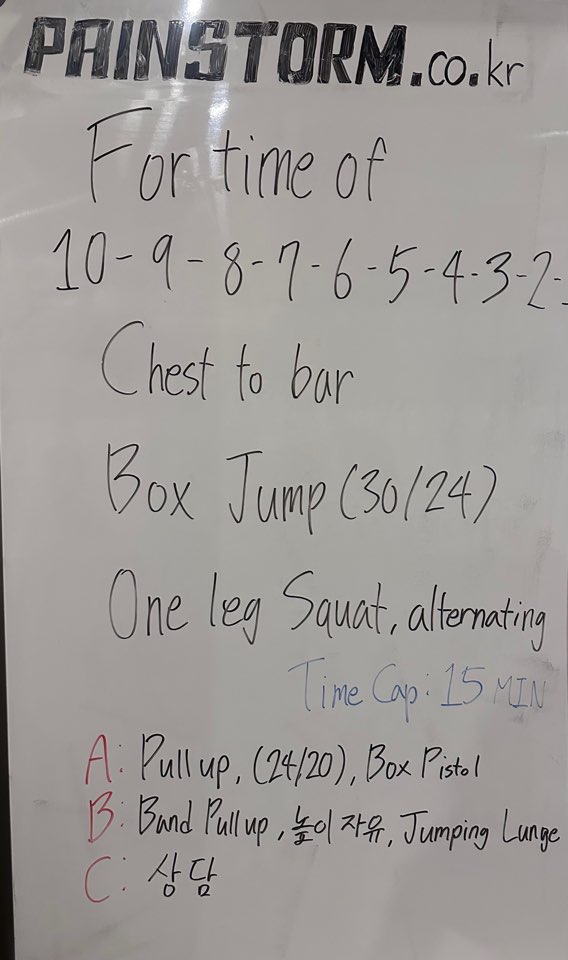 PAINSTORM.co.kr
For time of
10-9-8-7-6-5-4-3-2-
Chest to bar
Box Jump (30/24)
One leg Squat, alternating
Time Cap: 15 MIN
A: Pull up, (24/20), Box Pistol
B: Band Pull up, 높이 자유, Jumping Lunge
C: 상담